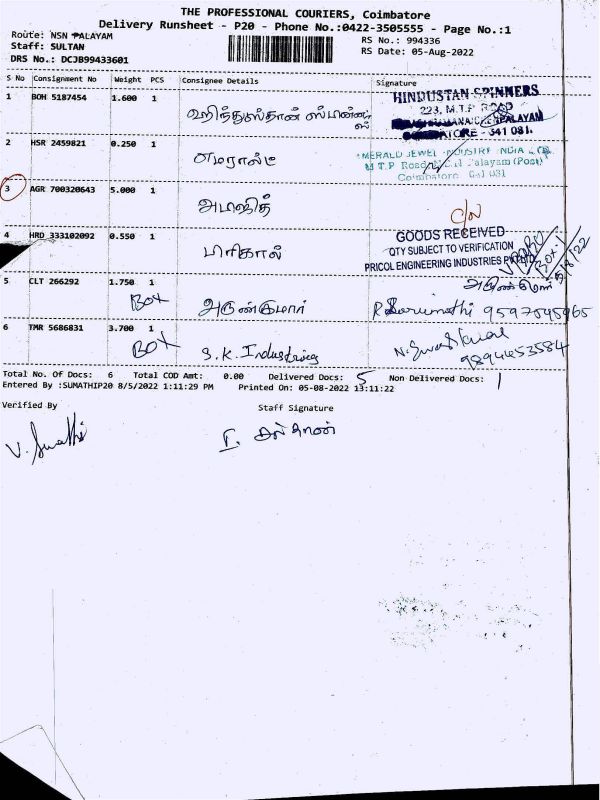 THE PROFESSIONAL COURIERS, Coimbatore
Delivery Runsheet - P20 - Phone No.:0422-3505555 - Page No.:1
Route: NSN PALAYAM
RS No.: 994336
Staff: SULTAN
RS Date: 05-Aug-2022
DRS No.: DCJB99433601
S No Consignment No Weight PCS Consignee Details Signature
1 BOH 5187454 1.600 1 ஹிந்துஸ்தான் ஸ்பின்னர்ஸ்
HINDUSTAN SPINNERS
223, M.T.P ROAD
COIMBATORE - 641 031.
2 HSR 2459821 0.250 1 எமரால்டு
EMERALD JEWEL INDUSTRY INDIA
M.T.P Road, Palayam (Post)
Coimbatore 641 031
3 AGR 700320643 5.000 1 அமஜித்
C/N
4 HRD 333102092 0.550 1 பிரிகால்
GOODS RECEIVED
QTY SUBJECT TO VERIFICATION
PRICOL ENGINEERING INDUSTRIES PVT LTD
BOX-1
5/8/22
5 CLT 266292 1.750 1 BOX அருண்குமார்
அருண்குமார்
9597045965
6 TMR 5686831 3.700 1 BOX S.K. Industries
9894453584
Total No. Of Docs: 6 Total COD Amt: 0.00 Delivered Docs: 5 Non Delivered Docs: 1
Entered By :SUMATHIP20 8/5/2022 1:11:29 PM Printed On: 05-08-2022 13:11:22
Verified By
Staff Signature
V. Swathi